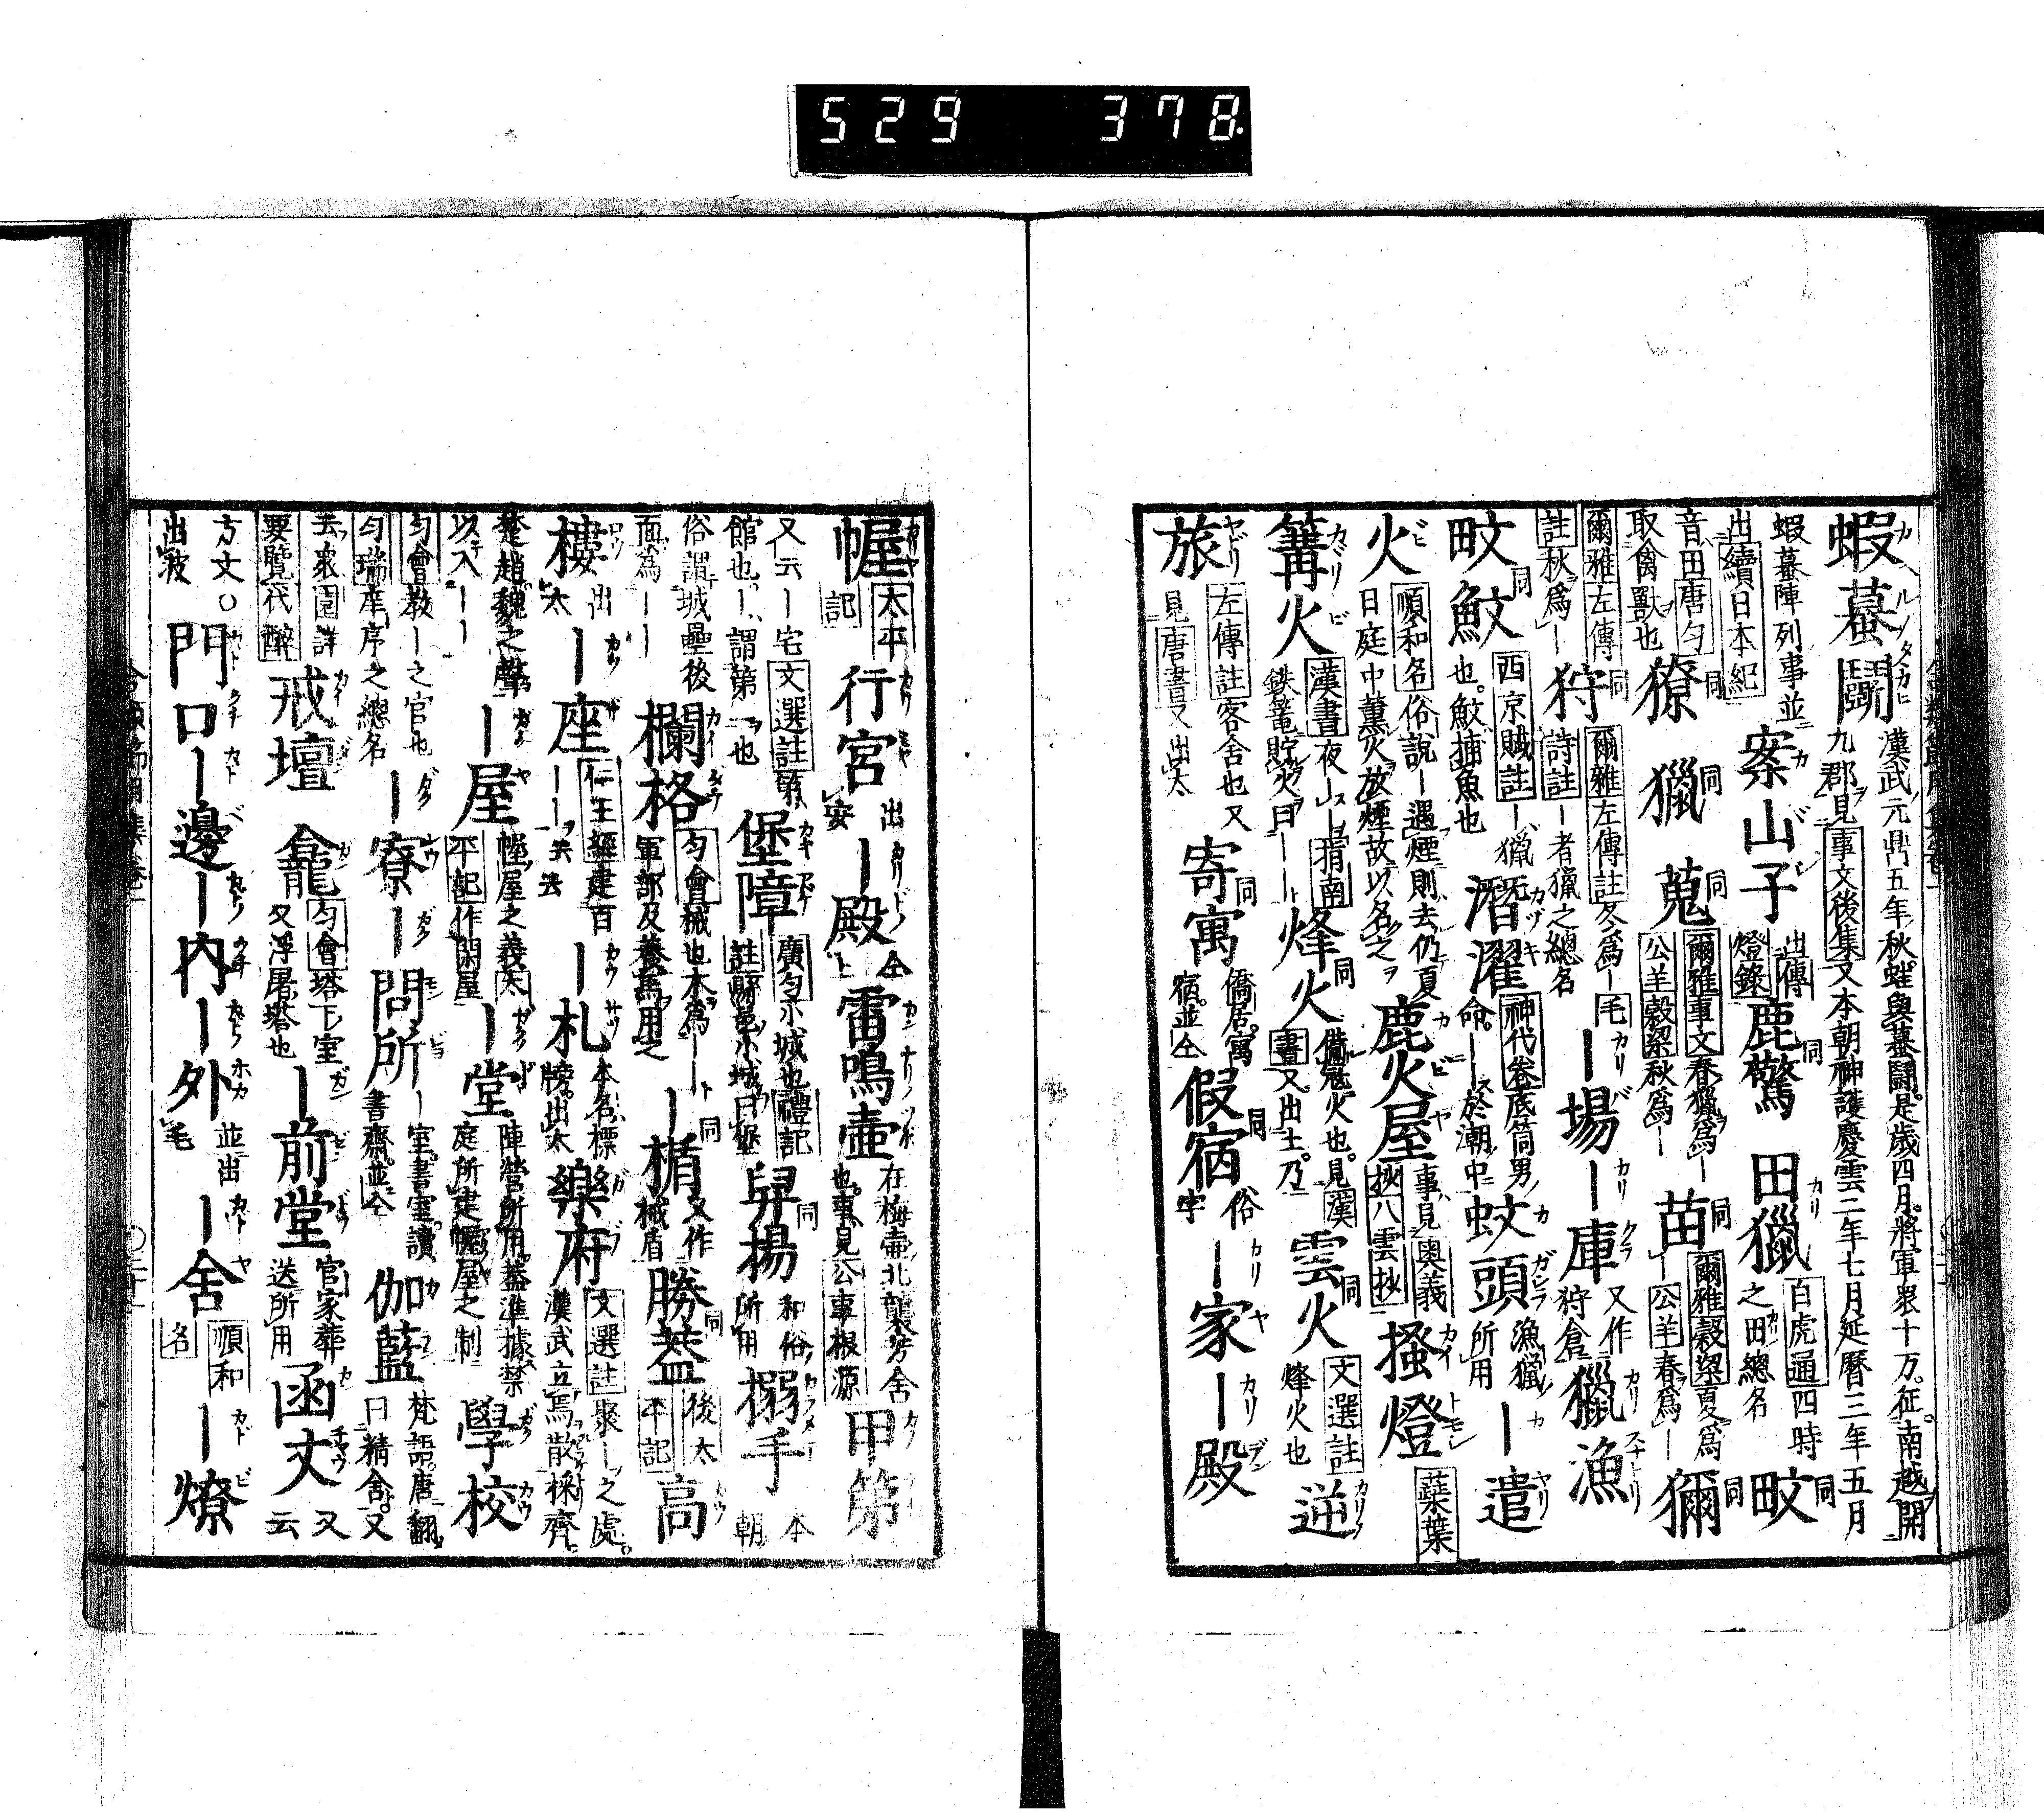 529 378
蝦蟇鬪 漢武元鼎五年秋蛙與蟇鬪是歳四月將軍衆十万征南越開九郡見事文後集又本朝神護慶雲二年七月延暦三年五月
蝦蟇陣列事並出續日本紀 案山子 出傳燈錄 鹿驚 同 田獵 白虎通四時之田總名 畋 同
音田唐匀取禽獸也 獠 同 獵 同 蒐 同 爾雅事文春獵爲ー公羊穀梁秋爲ー 苗 同 爾雅穀梁夏爲ー公羊春爲ー 獮 同
爾雅左傳註秋爲ー 狩 同 爾雅左傳註冬爲ー毛詩註ー者獵之總名 ー場 ー庫 又作狩倉 獵漁
畋鮫 同 西京賊註ー獵无也鮫捕魚也 潛濯 神代卷底筒男命ー於潮中 蚊頭 漁獵所用 ー遣
火 順和名俗說ー遇煙則去仍夏日庭中薰火放煙故以名之 鹿火屋 事見奧義抄八雲抄 搔燈 蘂葉
篝火 漢書夜ー狷南鉄篝貯火曰ーー 烽火 同 備寇火也見漢書又出土乃 雲火 同 文選註烽火也 逆
旅 左傳註客舍也又見唐書又出太 寄寓 同 僑居寓宿並仝 假宿 同 俗字 ー家 ー殿
幄 太平記 行宮 出安 ー殿 仝上 雷鳴壷 在梅壷北襲芳舍也事見公事根源 甲第
又云ー宅文選註第館也ー謂第一也 堡障 廣匀小城也禮記註縣邑小城曰堡 舁揚 同 和俗所用 搦手 本朝
俗謂城壘後面爲ーー 欄格 匀會械也木爲ー軍部及養馬用之 ー楯 同 又作械盾 勝蓋 同 後太平記 高
樓 出太 ー座 仁王經建百ーー云云 ー札 本名標牓出太 樂府 文選註聚ー之處漢武立焉散採齊
楚趙魏之聲以入ーー ー屋 幄屋之義太平記作閑屋 ー堂 陣營所用蓋準據禁庭所建幄屋之制 學校
匀會教ー之官也匀瑞庠序之總名 ー寮 ー問所 ー室書室讀書齋並仝 伽藍 梵語唐翻曰精舍又
云衆園詳要覽代醉 戒壇 龕 匀會塔下室又浮屠塔也 ー前堂 官家葬送所用 函丈 又云
方丈○出波 門口 ー邊 ー内 ー外 並出毛 ー舍 順和名 ー燎